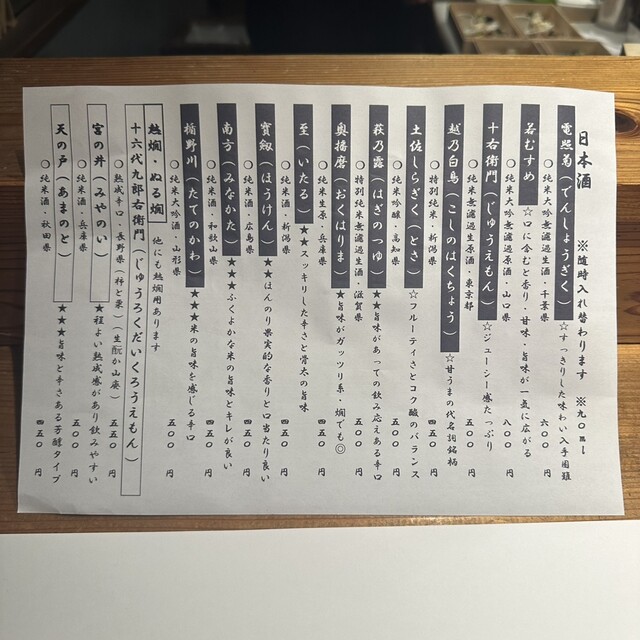 日本酒　※随時入れ替わります　※九〇ml
電照菊（でんしょうぎく）☆すっきりした味わい入手困難
○純米大吟醸無濾過生酒・千葉県　六〇〇円
若むすめ　☆口に含むと香り・甘味・旨味が一気に広がる
○純米大吟醸無濾過原酒・山口県　八〇〇円
十右衛門（じゅうえもん）☆ジューシー感たっぷり
○純米無濾過生原酒・東京都　五〇〇円
越乃白鳥（こしのはくちょう）☆甘うまの代名詞銘柄
○特別純米・新潟県　四五〇円
土佐しらぎく（とさ）☆フルーティさとコク酸のバランス
○純米吟醸・高知県　五〇〇円
萩乃露（はぎのつゆ）★旨味があっての飲み応えある辛口
○特別純米無濾過生酒・滋賀県　五〇〇円
奥播磨（おくはりま）★旨味がガッツリ系・燗でも◎
○純米生原・兵庫県　五〇〇円
至（いたる）★★スッキリした辛さと骨太の旨味
○純米酒・新潟県　四五〇円
寳剱（ほうけん）★★ほんのり果実的な香りと口当たり良い
○純米酒・広島県　四五〇円
南方（みなかた）★★★ふくよかな米の旨味とキレが良い
○純米酒・和歌山県　四五〇円
楯野川（たてのかわ）★★★米の旨味を感じる辛口
○純米大吟醸・山形県　五五〇円
熱燗・ぬる燗　他にも熱燗用あります
十六代九郎右衛門（じゅうろくだいくろうえもん）
○熟成辛口・長野県（杯と栗）（生酛か山廃）　五五〇円
宮の井（みやのい）★程よい熟成感があり飲みやすい
○純米酒・兵庫県　四五〇円
天の戸（あまのと）★★★旨味と辛さある芳醇タイプ
○純米酒・秋田県　四五〇円